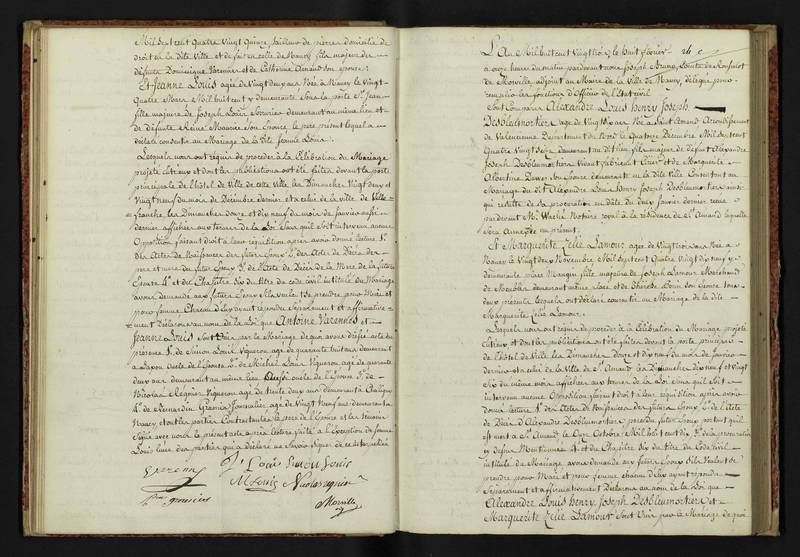 Mil Sept cent Quatre Vingt Quinze, tailleur de pierres domicilié de
droit en la dite Ville et de fait en celle de Nancy, fils majeur de
défunts Dominique Varennes et de Catherine Arnaud son épouse :
Et Jeanne Louis agée de Vingt deux ans Née à Nancy le Vingt
Quatre Mars Mil huit cent y demeurante Sous la porte St Jean
fille majeure de Joseph Louis demeurant au même lieu et
de défunte Reine Son Epouse, le père présent lequel a
déclaré consentir au Mariage de la dte Jeanne Louis.
Lesquels nous ont requis de procéder à la Célébration du Mariage
projeté entr'eux et dont les publications ont été faites devant la porte
principale de l'hôtel de Ville de cette Ville, les Dimanches Vingt deux et
Vingt neuf du mois de Décembre dernier et à celui de la ville de Ville=
=franche, les Dimanches douze et dix neuf du mois de Janvier aussi
dernier affichées aux termes de la Loi Sans qu'il Soit intervenu aucune
Opposition, faisant droit à leur réquisition après avoir donné lecture 1°
des Actes de Naissances des futurs Epoux 2° des Actes de Décès des
père et mère du futur Epoux 3° de l'Acte de Décès de la Mère de la future
Epouse 4° et du Chapitre Six du titre du code civil intitulé du Mariage
avons demandé aux futurs Epoux s'ils veulent se prendre pour Mari et
pour femme Chacun d'eux ayant répondu Séparément et affirmative=
=ment Déclarons au nom de la Loi que Antoine Varennes et
Jeanne Louis sont Unis par le Mariage de quoi avons dressé acte en
présence 1° de Simon Louis Vigneron agé de quarante huit ans demeurant
à Laxou oncle de l'Epouse 2° de Michel Louis Vigneron agé de quarante
deux ans demeurant au même lieu Aussi oncle de l'Epouse 3° de
Nicolas Régnier Vigneron agé de trente deux ans demeurant à
4° de Bernardin Journalier agé de Vingt Neuf ans demeurant à
Nancy, et ont les parties Contractantes le père de l'Epouse et les témoins
Signé avec nous le présent acte après lecture faite à l'Exception de Jeanne
Louis l'une des parties qui a déclaré ne Savoir Signer de ce interpellée
Varenne J. Louis Simon Louis
M Louis Nicolas regnier
Morville
L'An Mil huit cent Vingt trois, le huit février
à onze heures du matin pardevant nous Joseph Bruno, Comte de
de Morville, adjoint au Maire de la Ville de Nancy, délégué pour
remplir les fonctions d'Officier de l'Etat civil
Sont Comparus Alexandre Louis Henry Joseph
Desbleumortier, agé de Vingt Six ans Né à Saint Amand Arrondissement
de Valenciennes Département du Nord le Quatorze Décembre Mil Sept cent
Quatre Vingt Seize demeurant au dit lieu fils majeur de défunt Alexandre
Joseph Desbleumortier Vivant fabricant et de Marguerite
Albertine Son Epouse demeurante en la dite Ville Consentant au
Mariage du dit Alexandre Louis Henry Joseph Desbleumortier ainsi
qu'il résulte de sa procuration en date du dix Janvier dernier reçue
pardevant Me Notaire royal à la résidence de St Amand laquelle
Sera Annexée au présent.
Et Marguerite Zélie Lamour agée de Vingt trois ans Née à
Nancy le Vingt deux Novembre Mil Sept cent Quatre Vingt dix neuf y
demeurante place Mangin fille majeure de Joseph Lamour Marchand
de Meubles demeurant même place et de Thérèse Son Epouse tous
deux présents lesquels ont déclaré consentir au Mariage de la dte
Marguerite Zélie Lamour.
Lesquels nous ont requis de procéder à la Célébration du Mariage projeté
entr'eux, et dont les publications ont été faites devant la porte principale
de l'hôtel de Ville les Dimanches Douze et dix neuf du mois de Janvier
dernier et à celui de la Ville de St Amand les Dimanches dix neuf et Vingt
Six du même mois affichées aux termes de la Loi Sans qu'il Soit
intervenu aucune Opposition, faisant droit à leur réquisition après avoir
donné lecture 1° des Actes de Naissances des futurs Epoux 2° de l'Acte
de Décès d'Alexandre Desbleumortier père du futur Epoux portant qu'il
est mort à St Amand, le Onze Octobre Mil huit cent dix 3° de la procuration
cy dessus Mentionnée 4° et du Chapitre Six du titre du Code civil
intitulé du Mariage avons demandé aux futurs Epoux S'ils Veulent Se
prendre pour Mari et pour femme chacun d'eux ayant répondu
Séparément et affirmativement Déclarons au nom de la Loi que
Alexandre Louis Henry Joseph Desbleumortier et
Marguerite Zélie Lamour Sont Unis par le Mariage de quoi